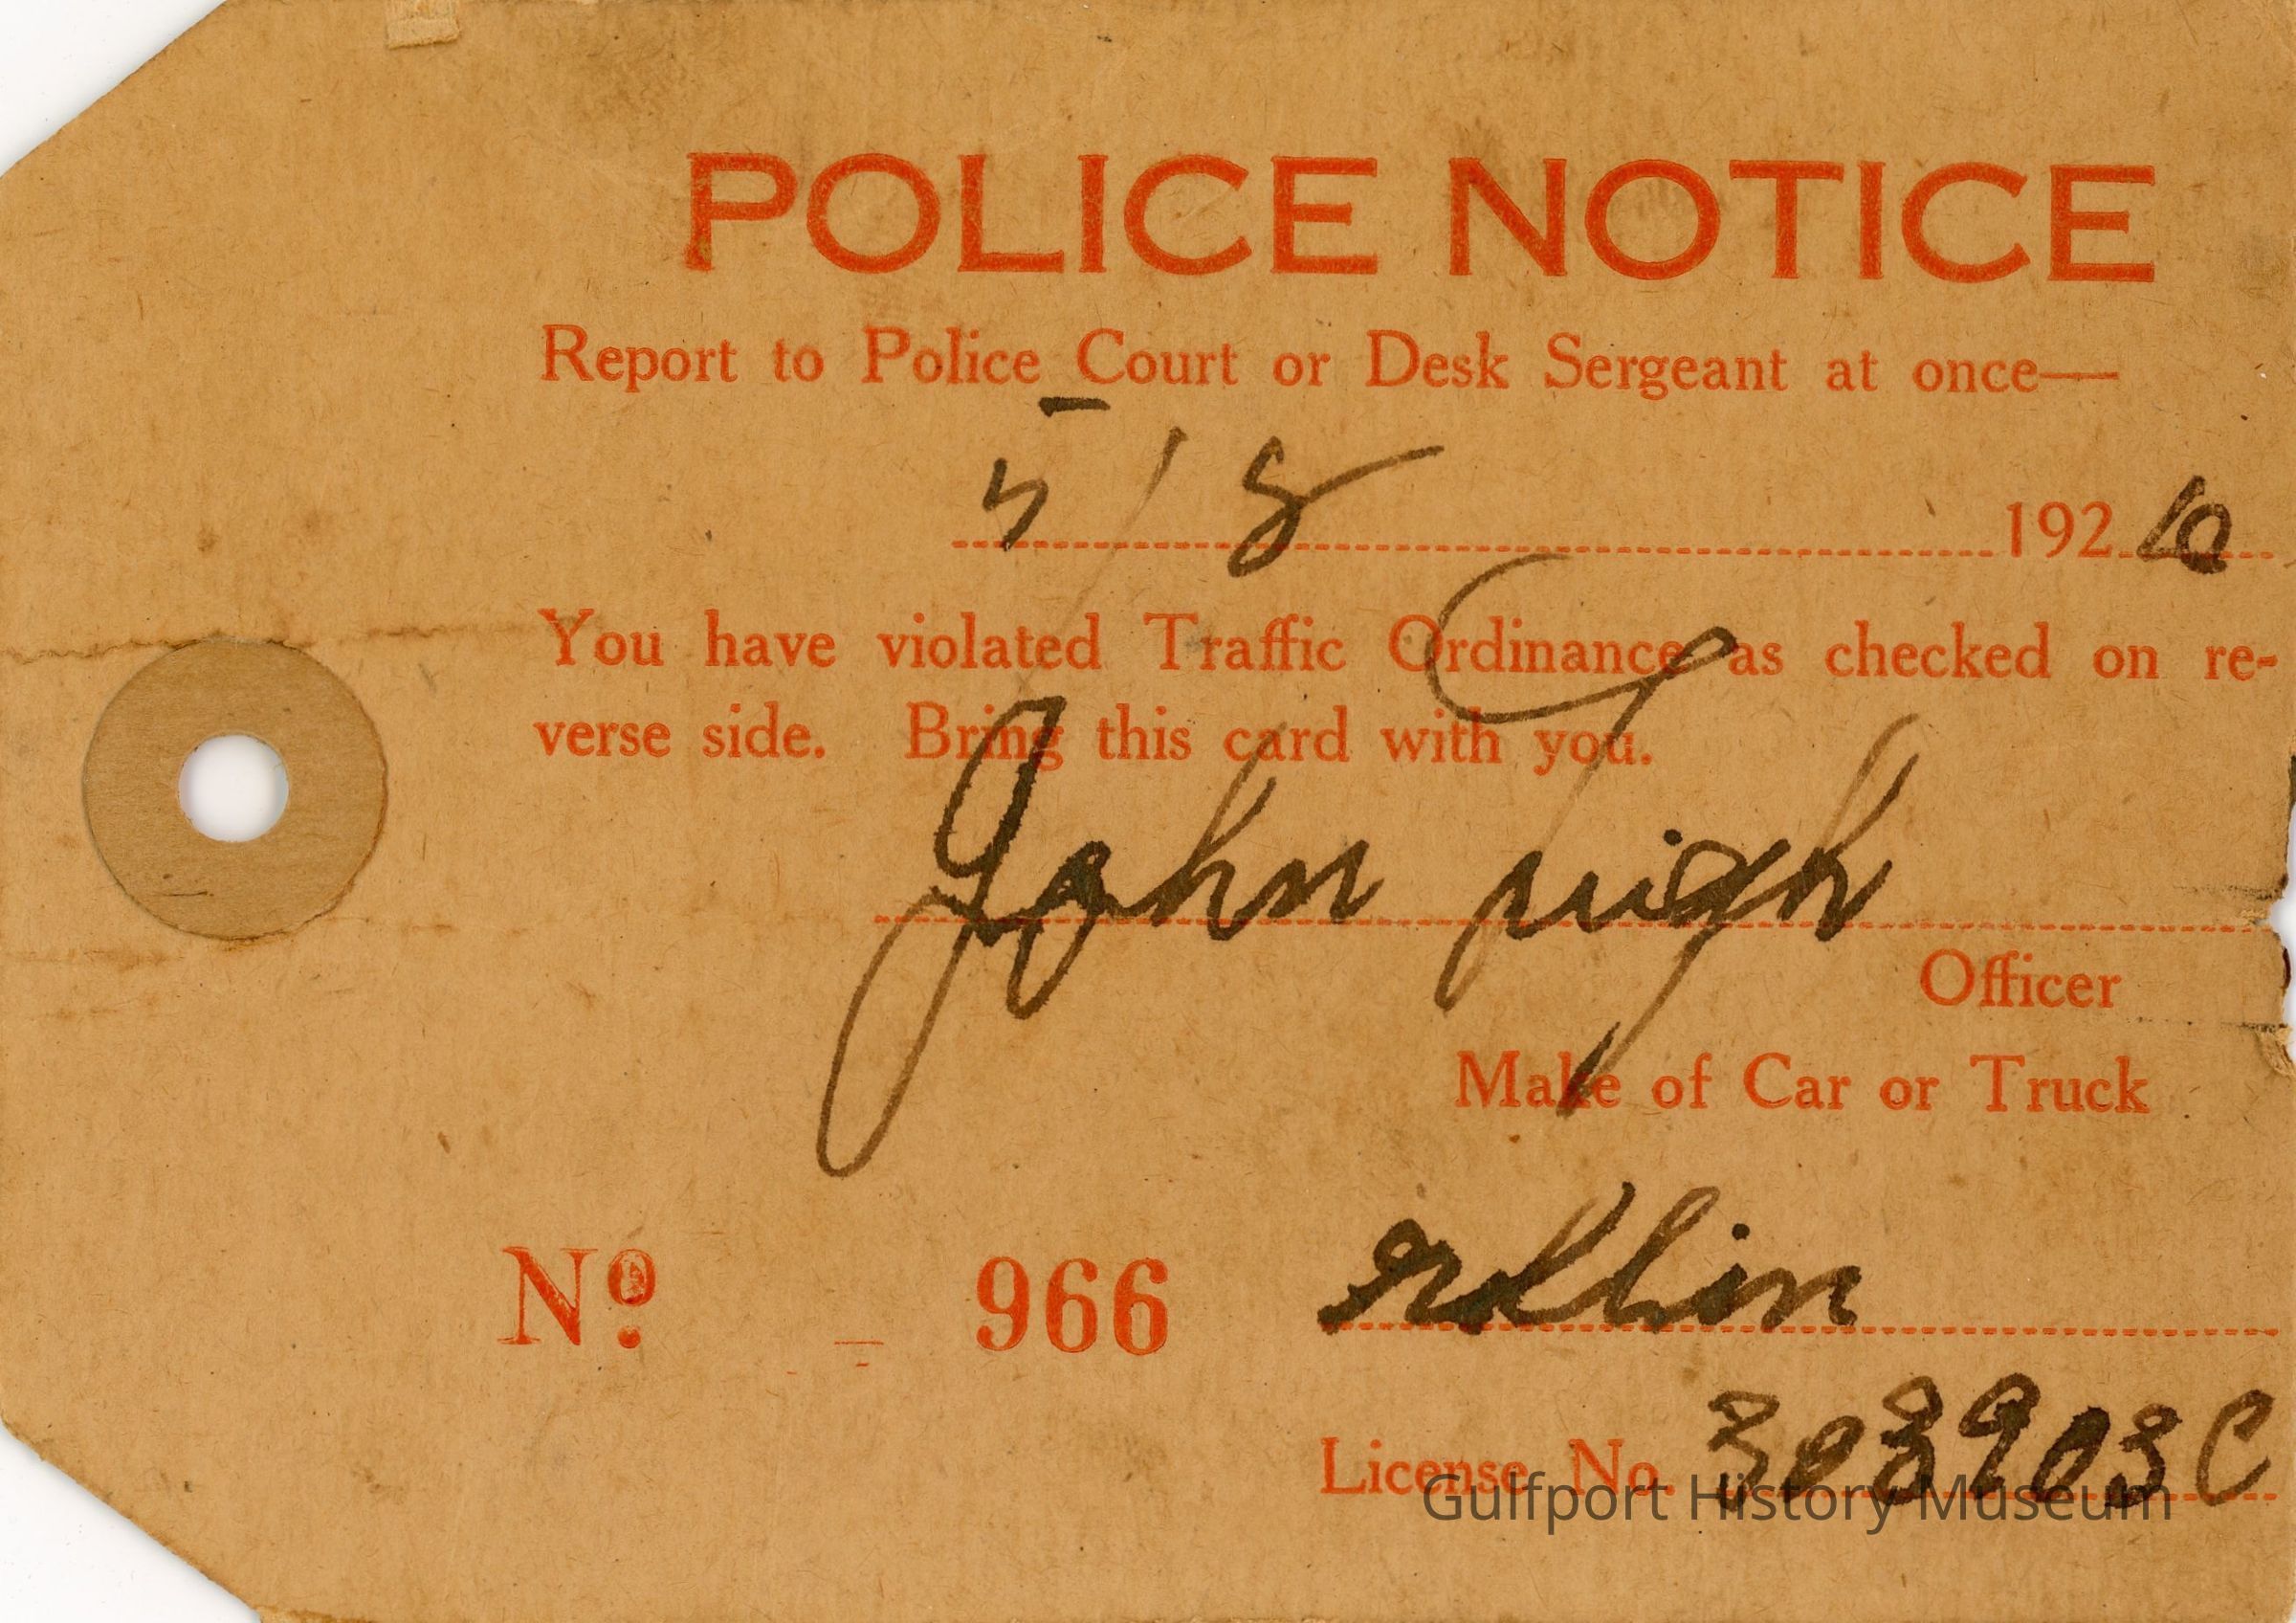 POLICE NOTICE
Report to Police Court or Desk Sergeant at once—
5/8 192
You have violated Traffic Ordinance as checked on re-
verse side. Bring this card with you.
John
Officer
Make of Car or Truck
Nº 966
License No. 303903C
Gulfport History Museum